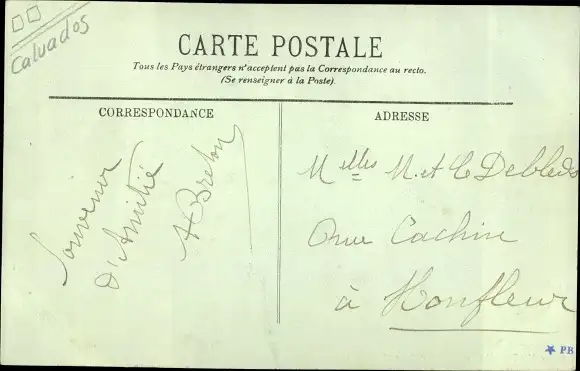 Calvados
CARTE POSTALE
Tous les Pays étrangers n'acceptent pas la Correspondance au recto.
(Se renseigner à la Poste).
CORRESPONDANCE
Souvenir
D'Amitié
A Breton
ADRESSE
Melles M. et C Debleds
Rue Cachin
à Honfleur
PB